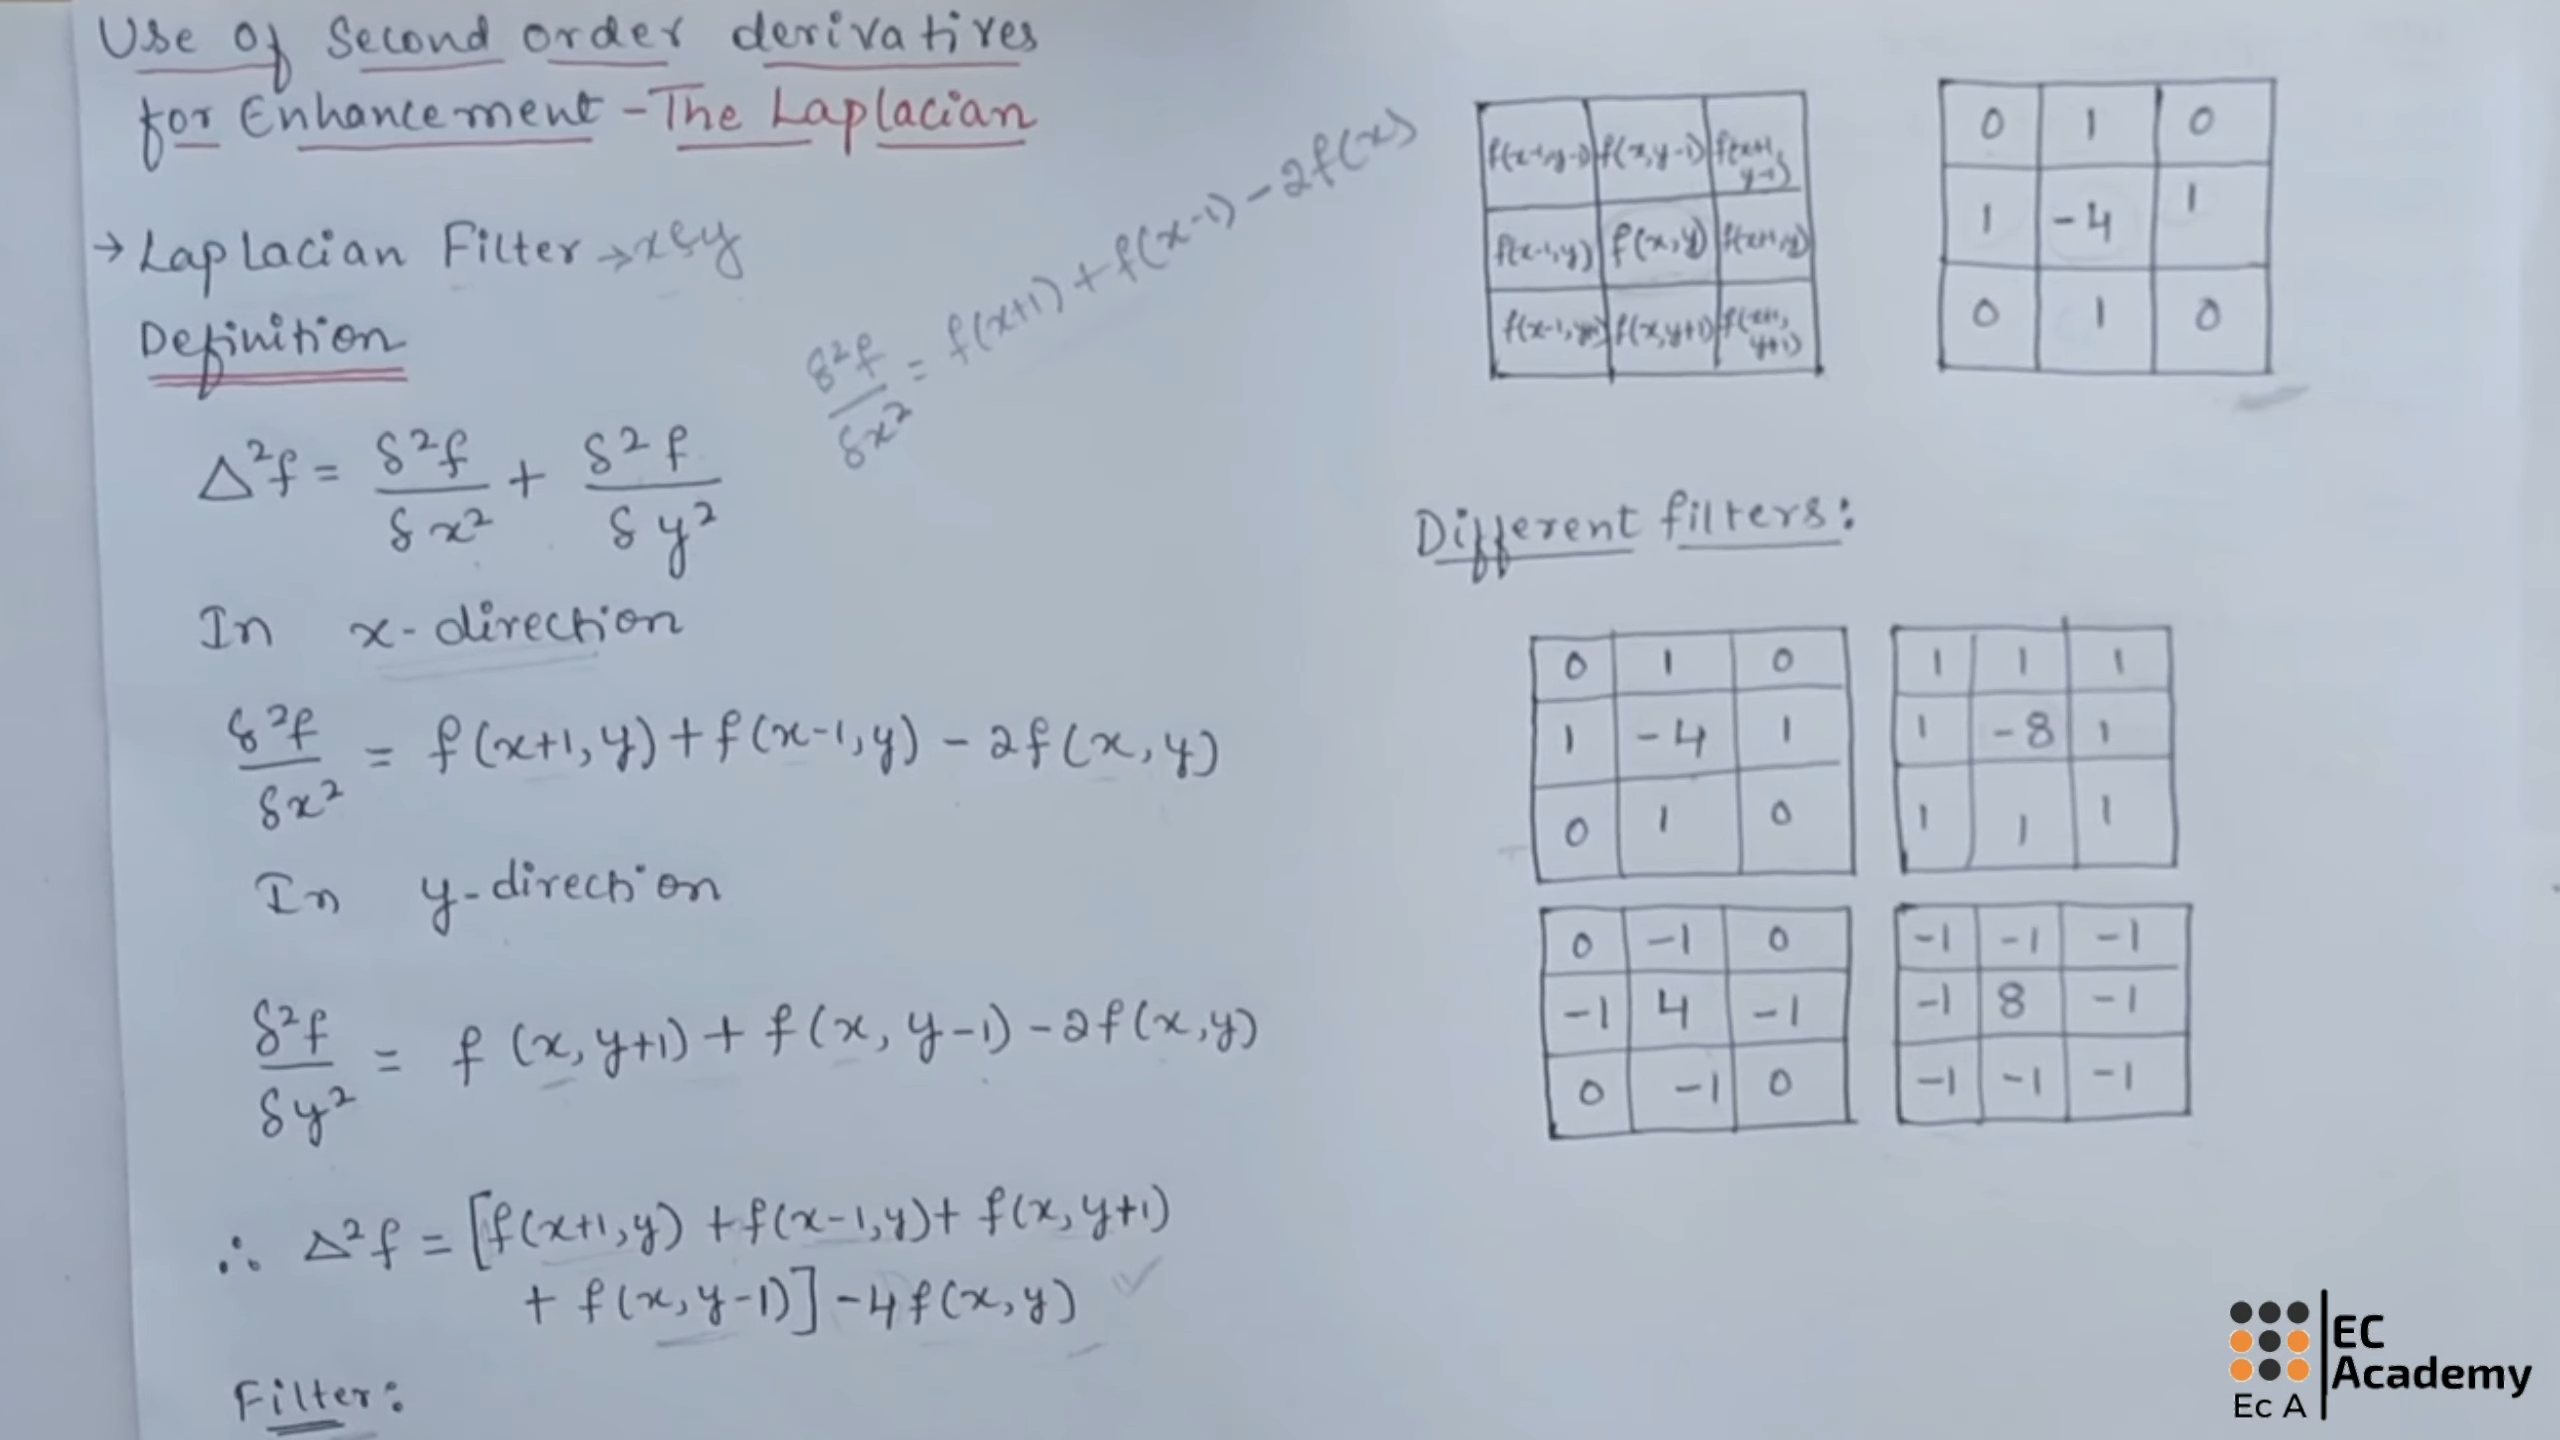 Use of Second order derivatives
for Enhancement - The Laplacian
→ Laplacian Filter → x & y
δ²f/δx² = f(x+1) + f(x-1) - 2f(x)
Definition
Δ²f = δ²f/δx² + δ²f/δy²
In x-direction
δ²f/δx² = f(x+1, y) + f(x-1, y) - 2f(x, y)
In y-direction
δ²f/δy² = f(x, y+1) + f(x, y-1) - 2f(x, y)
∴ Δ²f = [f(x+1, y) + f(x-1, y) + f(x, y+1)
+ f(x, y-1)] - 4f(x, y)
Filter:
f(x-1, y-1) f(x, y-1) f(x+1, y-1)
f(x-1, y) f(x, y) f(x+1, y)
f(x-1, y+1) f(x, y+1) f(x+1, y+1)
0 1 0
1 -4 1
0 1 0
Different filters:
0 1 0
1 -4 1
0 1 0
1 1 1
1 -8 1
1 1 1
0 -1 0
-1 4 -1
0 -1 0
-1 -1 -1
-1 8 -1
-1 -1 -1
EC
Academy
Ec A